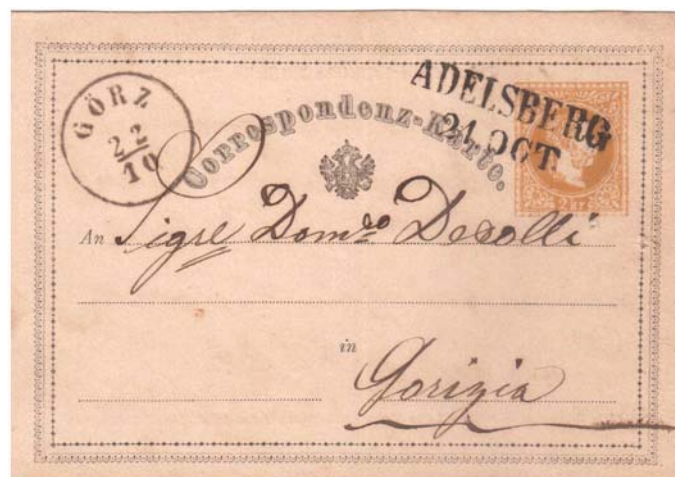 GÖRZ
22
10
Correspondenz-Karte.
ADELSBERG
21.OCT.
2 kr
An Sigre Domco Decolli
in
Gorizia